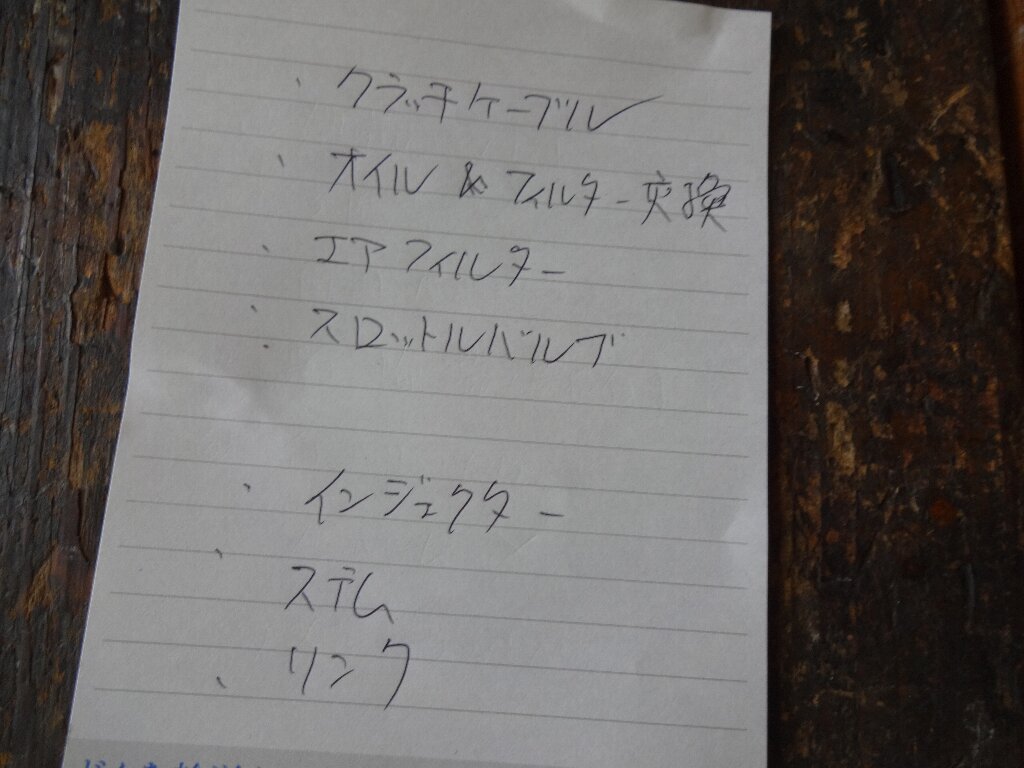 ・クラッチケーブル
・オイル & フィルター交換
・エアフィルター
・スロットルバルブ
・インジェクター
・ステム
・リンク